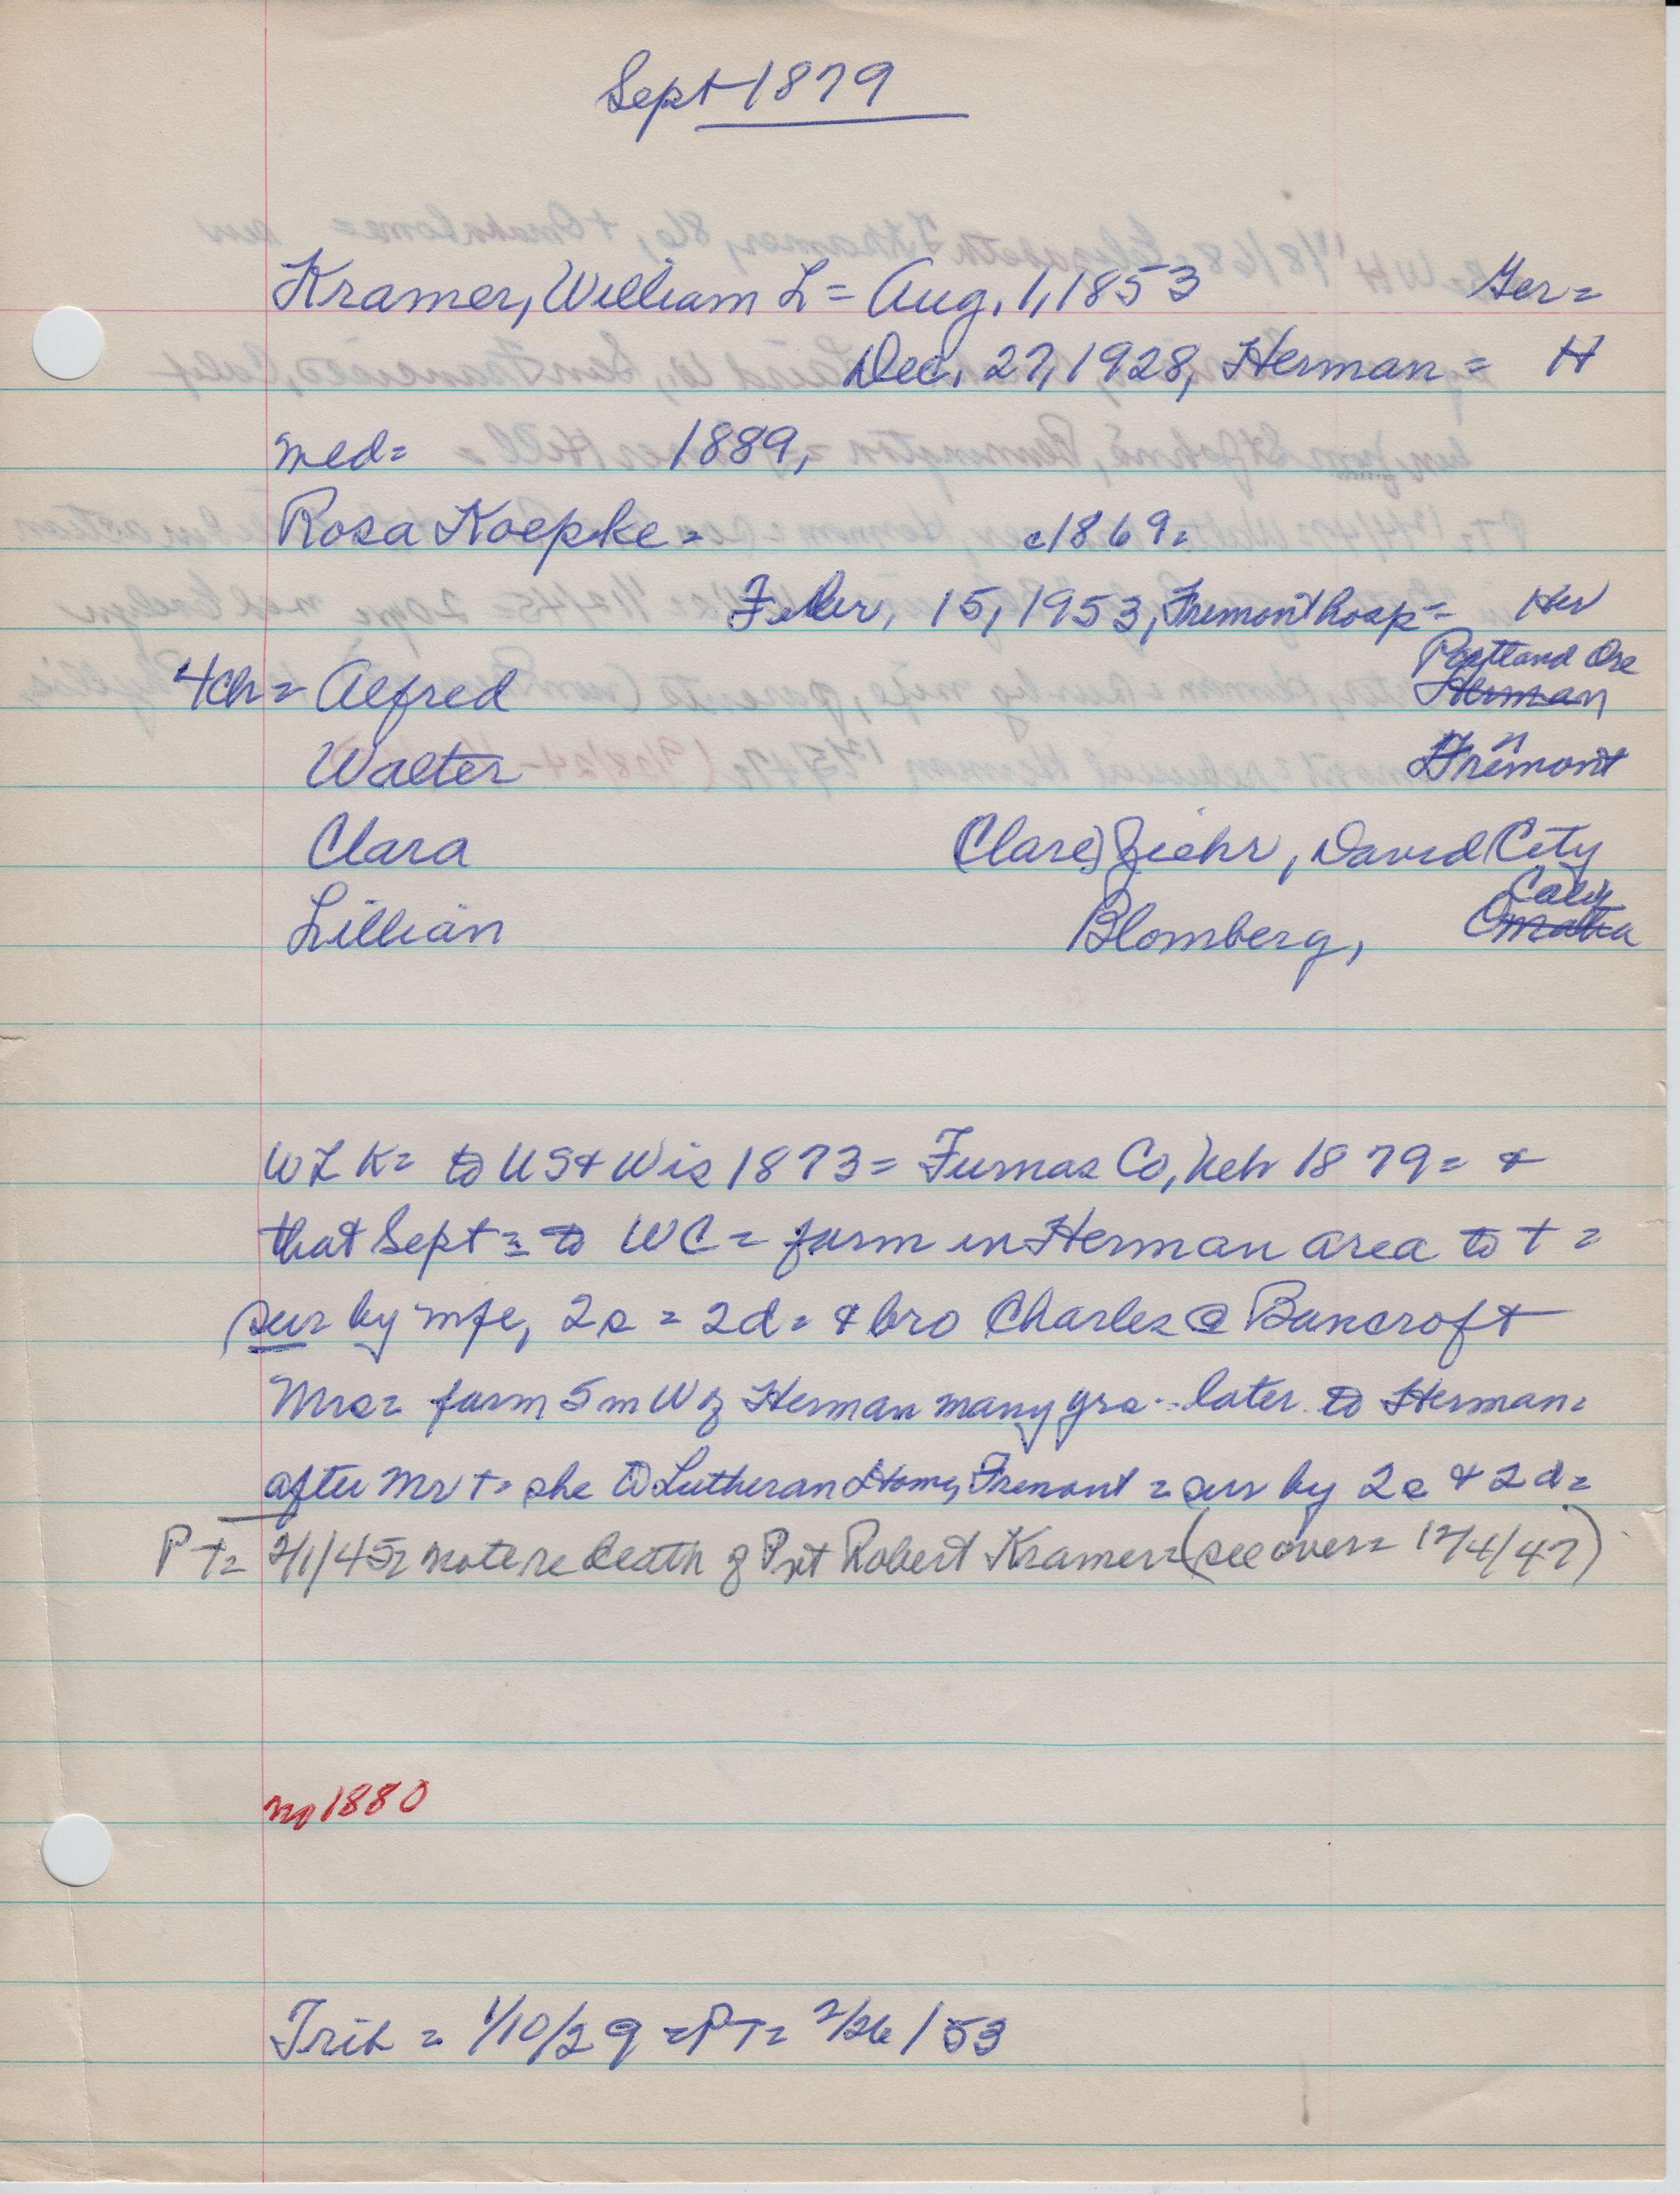 Sept 1879
Kramer, William L = Aug. 1, 1853 Ger =
Dec. 27, 1928, Herman = H
med = 1889,
Rosa Koepke = c1869 =
Feber. 15, 1953, Fremont hosp = Her
Portland Ore
4ch = Alfred Herman
Walter Fremont
Clara (Clare) Ziehr, David City
Calif
Lillian Blomberg, Omaha
WLK = to US & Wis 1873 = Furnas Co, Neb 1879 = &
that Sept = to WC = farm in Herman area to t =
sur by mfe, 2s = 2d = & bro Charles @ Bancroft
Mrs = farm 5 m W of Herman many yrs -- later to Herman =
after Mr t = she to Lutheran Home, Fremont = sur by 2s & 2d =
PT = 2/1/45 = note re death of Pvt Robert Kramer = (see over = 12/4/47)
no 1880
Trib = 1/10/29 = PT = 2/26/53